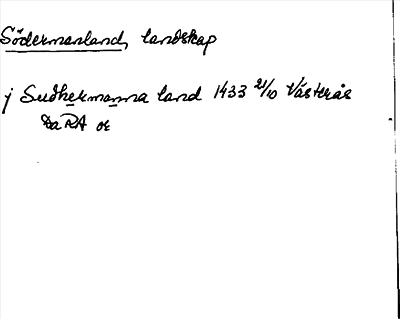 Södermanland, landskap
j Sudhermanna land 1433 21/10 Västerås
DaRA or